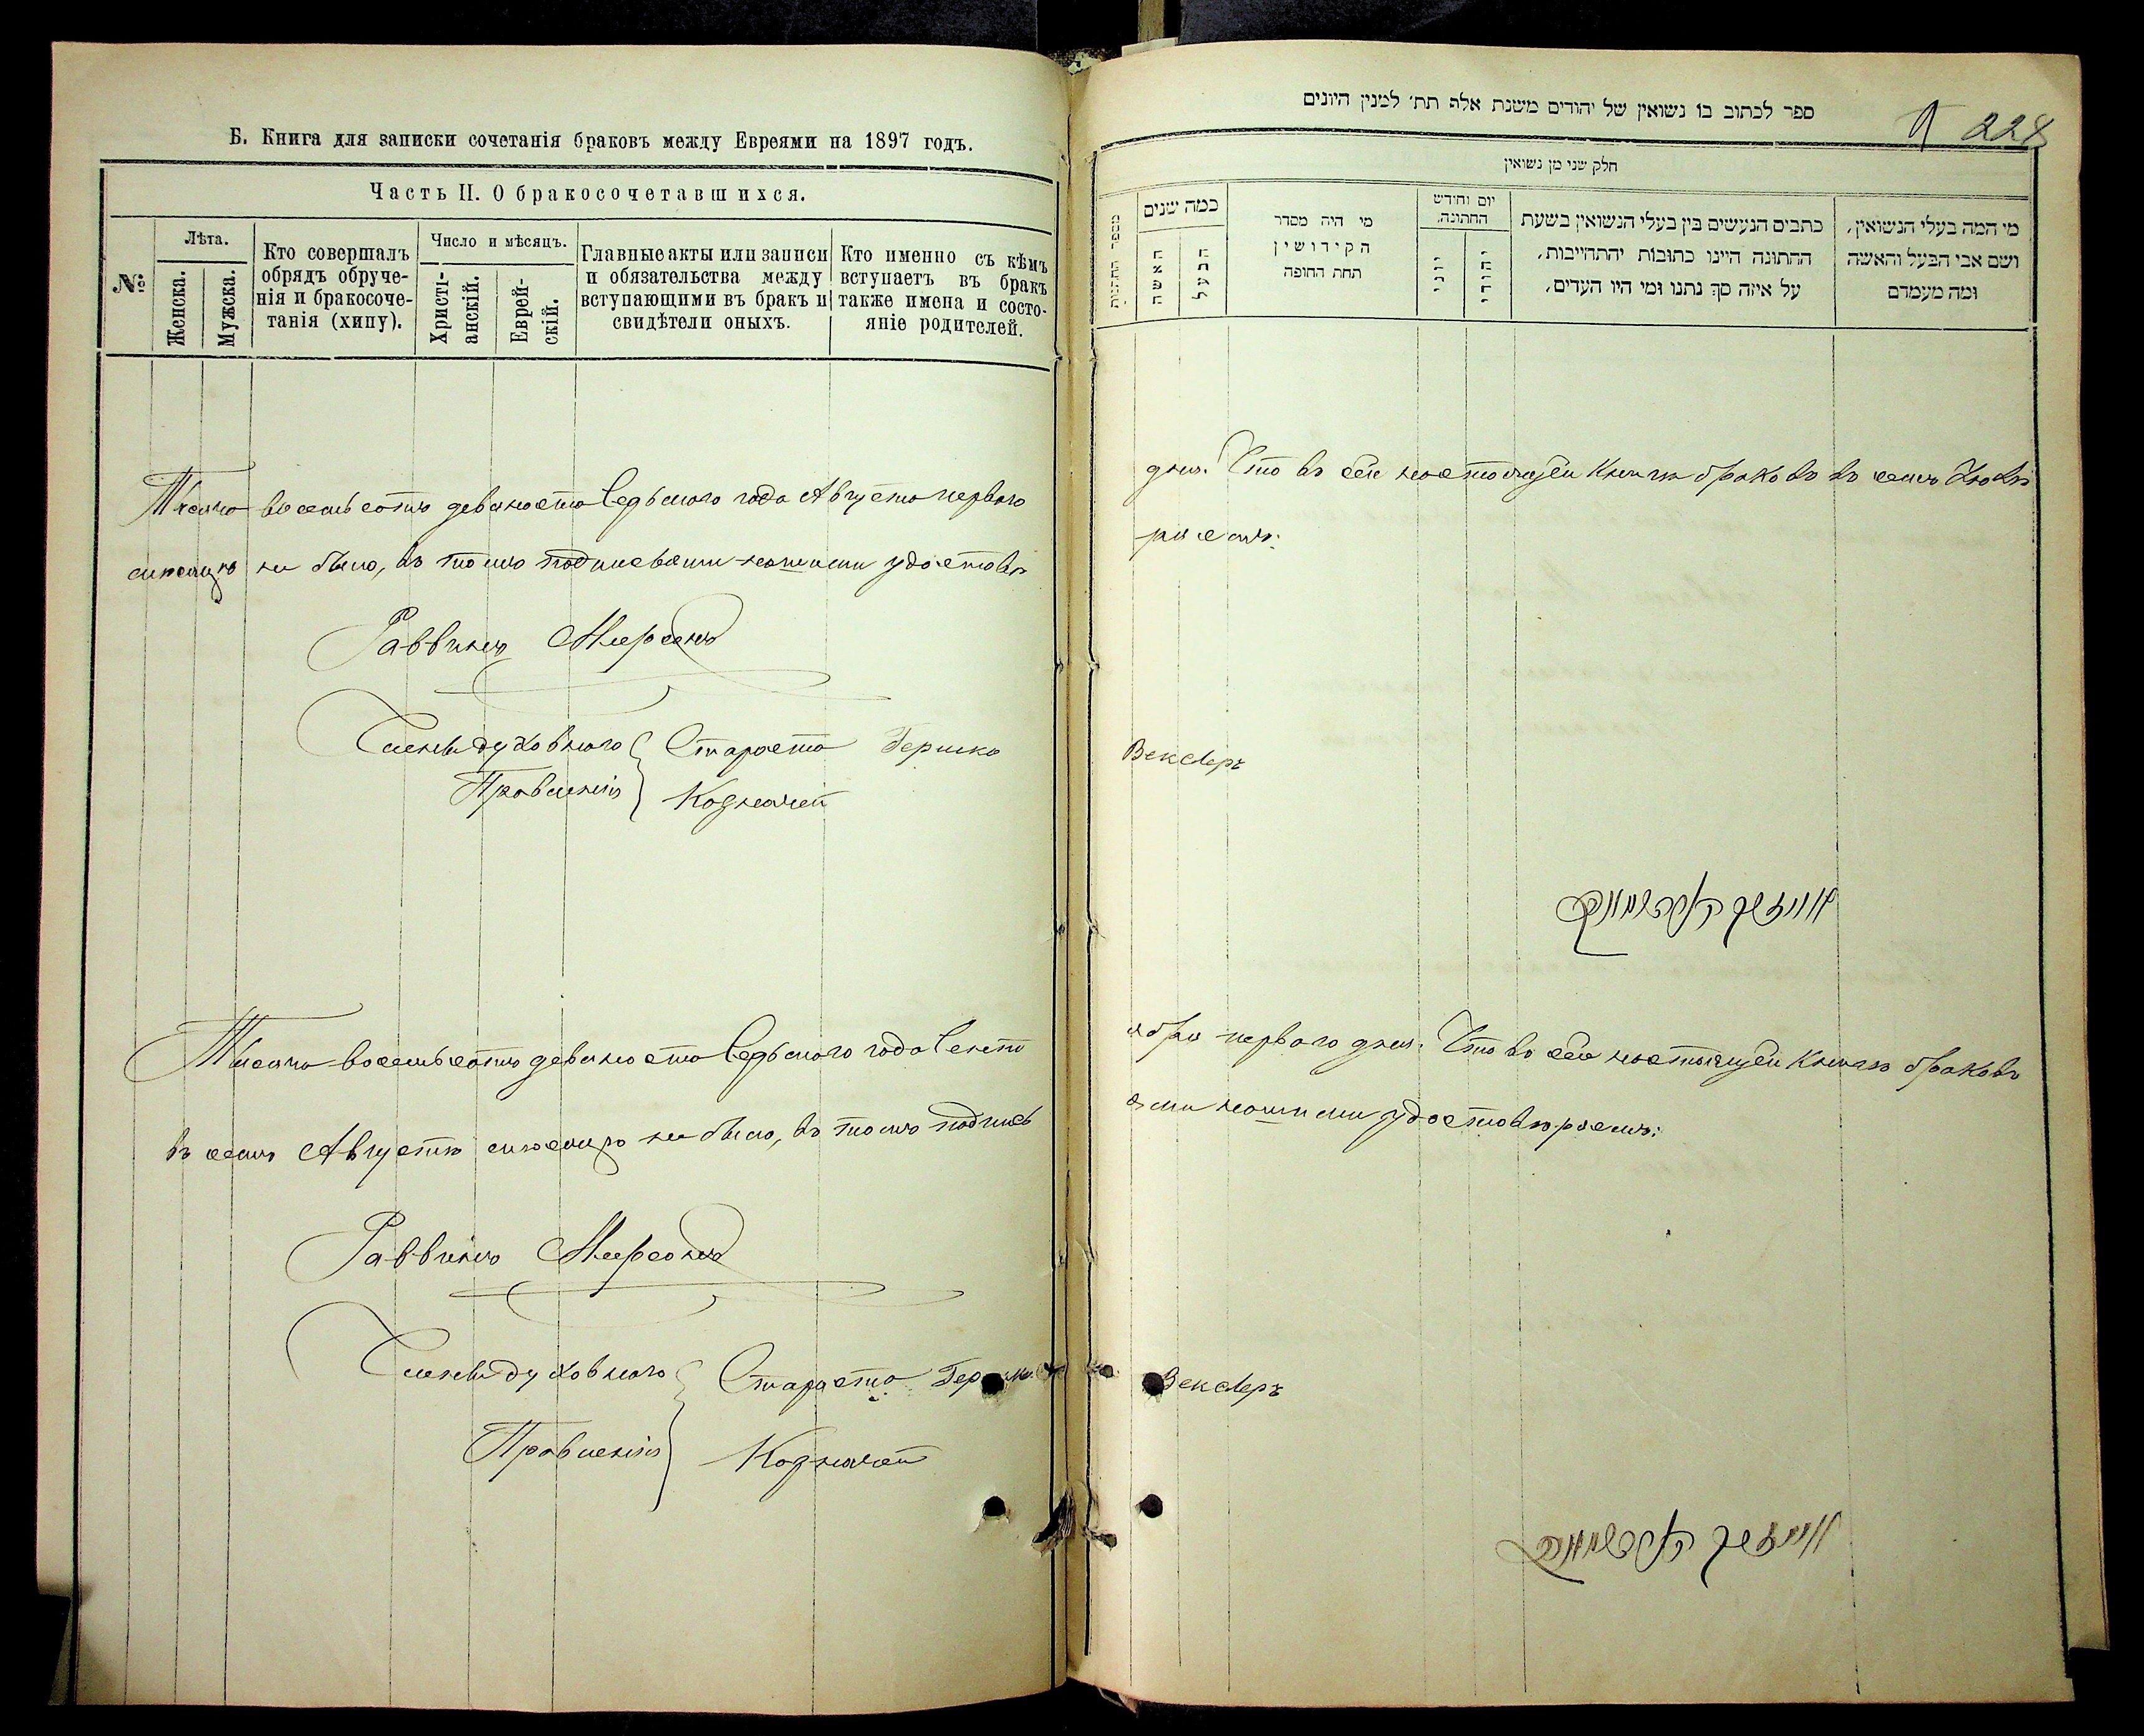 Б. Книга для записки сочетанія браковъ между Евреями на 1897 годъ.
Часть II. О бракосочетавшихся.
№
Лѣта.
Женска.
Мужска.
Кто совершалъ
обрядъ обруче-
нія и бракосоче-
танія (хипу).
Число и мѣсяцъ.
Христі-
анскій.
Еврей-
скій.
Главные акты или записи
и обязательства между
вступающими въ бракъ и
свидѣтели оныхъ.
Кто именно съ кѣмъ
вступаетъ въ бракъ
также имена и состо-
яніе родителей.
Тысяча восемьсотъ девяносто седьмого года Августа первого
мѣсяцѣ не было, въ томъ подписями нашими удостовѣ
Раввинъ Меерсонъ
Члены духовного
Правленія
Староста Гершко
Казначей
Тысяча восемьсотъ девяносто седьмого года Сент
въ семъ Августѣ мѣсяцѣ не было, въ томъ подпис
Раввинъ Меерсонъ
Члены духовного
Правленія
Староста
Казначей
ספר לכתוב בו נשואין של יהודים משנת אלף תת׳ למנין היונים
224
חלק שני מן נשואין
מספר החתנות
כמה שנים
האשה
הבעל
מי היה מסדר
הקידושין
תחת החופה
יום וחודש
החתונה,
יוני
יהודי
כתבים הנעשים בין בעלי הנשואין בשעת
ההתונה היינו כתובות יהתחייבות,
על איזה סך נתנו ומי היו העדים,
מי המה בעלי הנשואין,
ושם אבי הבעל והאשה
ומה מעמדם
дня. Что въ сей настоящей книгѣ браковъ въ семъ Іюлѣ
ряемъ:
Векслеръ
ября первого дня. Что въ сей настоящей книгѣ браковъ
ями нашими удостовѣряемъ:
Векслеръ